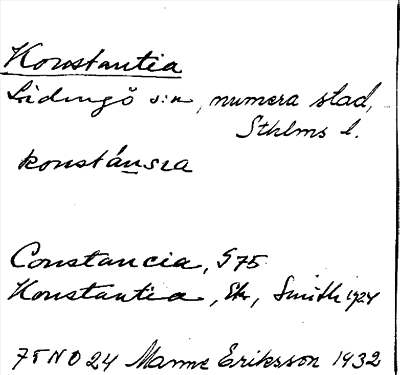 Konstantia
Lidingö s:n, numera stad,
Sthlms l.
konstánsia
Constancia, G75
Konstantia, Ek, Smith 1924
75 NO 24 Manne Eriksson 1932